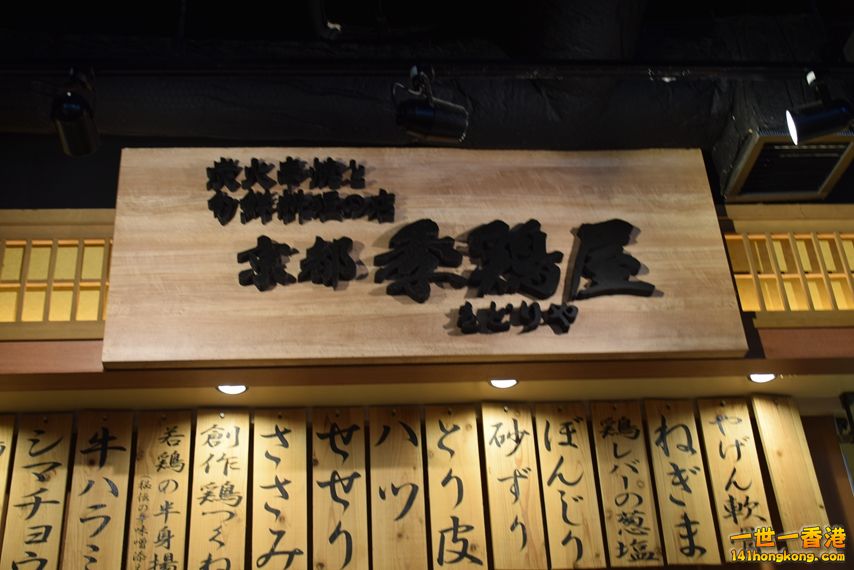 炭火串焼と
旬鮮料理の店
京都 季鶏屋
きどりや
やげん軟
ねぎま
鶏レバーの葱塩
ぼんじり
砂ずり
とり皮
ハツ
せせり
ささみ
創作鶏つくね
若鶏の半身揚
牛ハラミ
シマチョウ
一世一香港
141hongkong.com